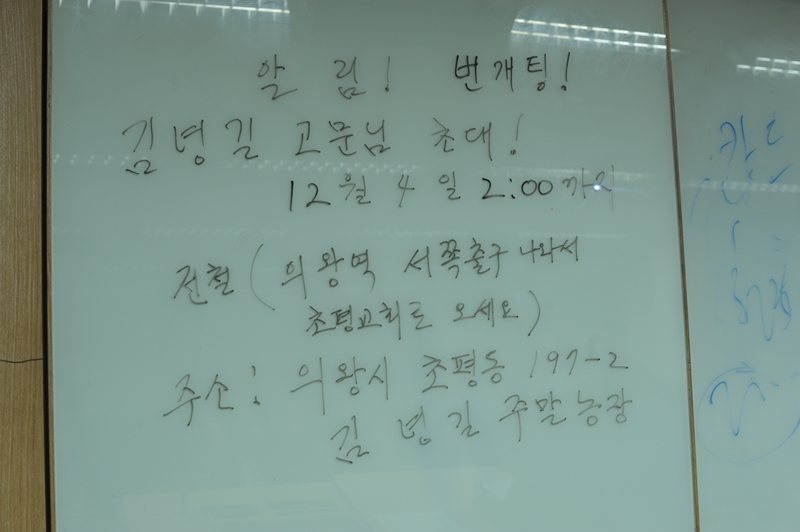 알림! 번개팅!
김명길 고문님 초대!
12월 4일 2:00까지
전철 (의왕역 서쪽출구 나와서
초평교회로 오세요)
주소: 의왕시 초평동 197-2
김명길 주말농장